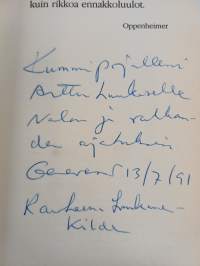 kuin rikkoa ennakkoluulot.
Oppenheimer
Kummipojalleni
Artturi Luukselle
Valon ja rakkau-
den ajatuksin
Geneve 13/7/91
Rauni-Leena Luukanen-
Kilde